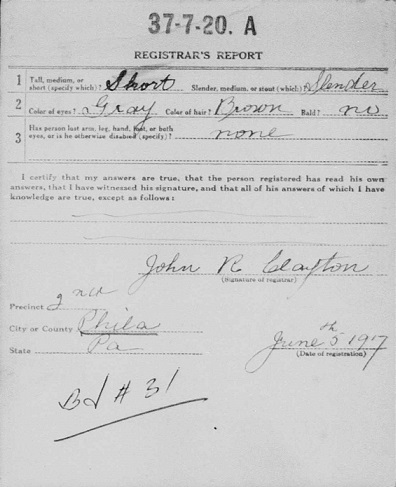 37-7-20. A
REGISTRAR'S REPORT
1 Tall, medium, or short (specify which)? Short Slender, medium, or stout (which)? Slender
2 Color of eyes? Gray Color of hair? Brown Bald? no
3 Has person lost arm, leg, hand, foot, or both eyes, or is he otherwise disabled (specify)? none
I certify that my answers are true, that the person registered has read his own
answers, that I have witnessed his signature, and that all of his answers of which I have
knowledge are true, except as follows:
John R Clayton
(Signature of registrar)
Precinct
City or County Phila
State Pa
June 5th 1917
(Date of registration)
Bd # 31